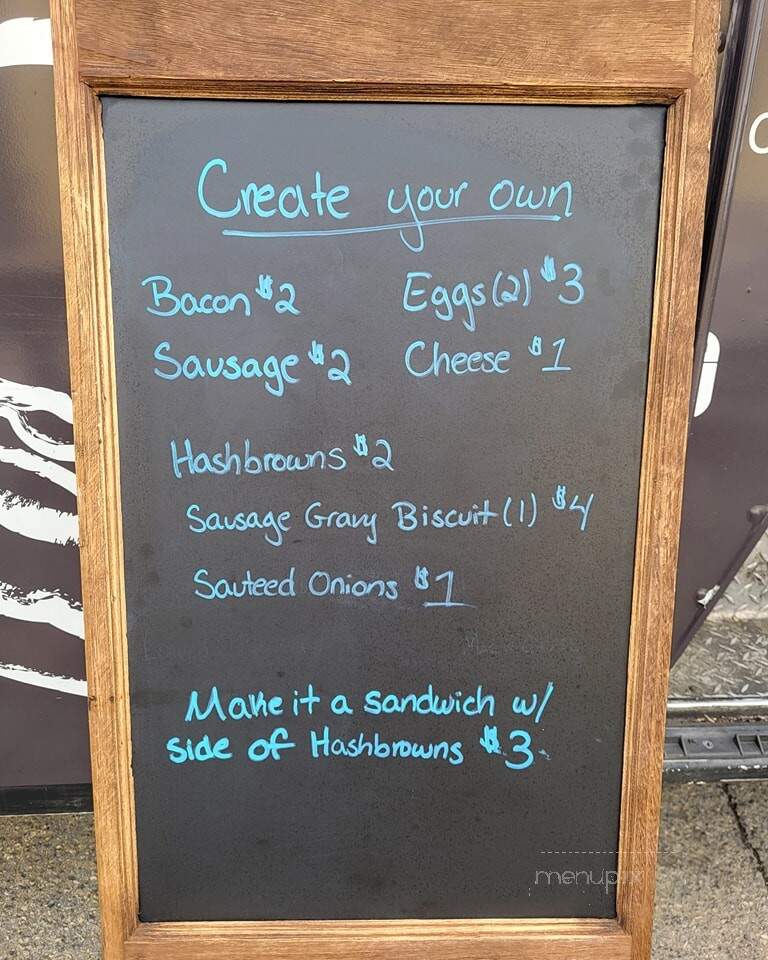 Create your own
Bacon $2 Eggs (2) $3
Sausage $2 Cheese $1
Hashbrowns $2
Sausage Gravy Biscuit (1) $4
Sauteed Onions $1
Make it a sandwich w/
side of Hashbrowns $3
menupix